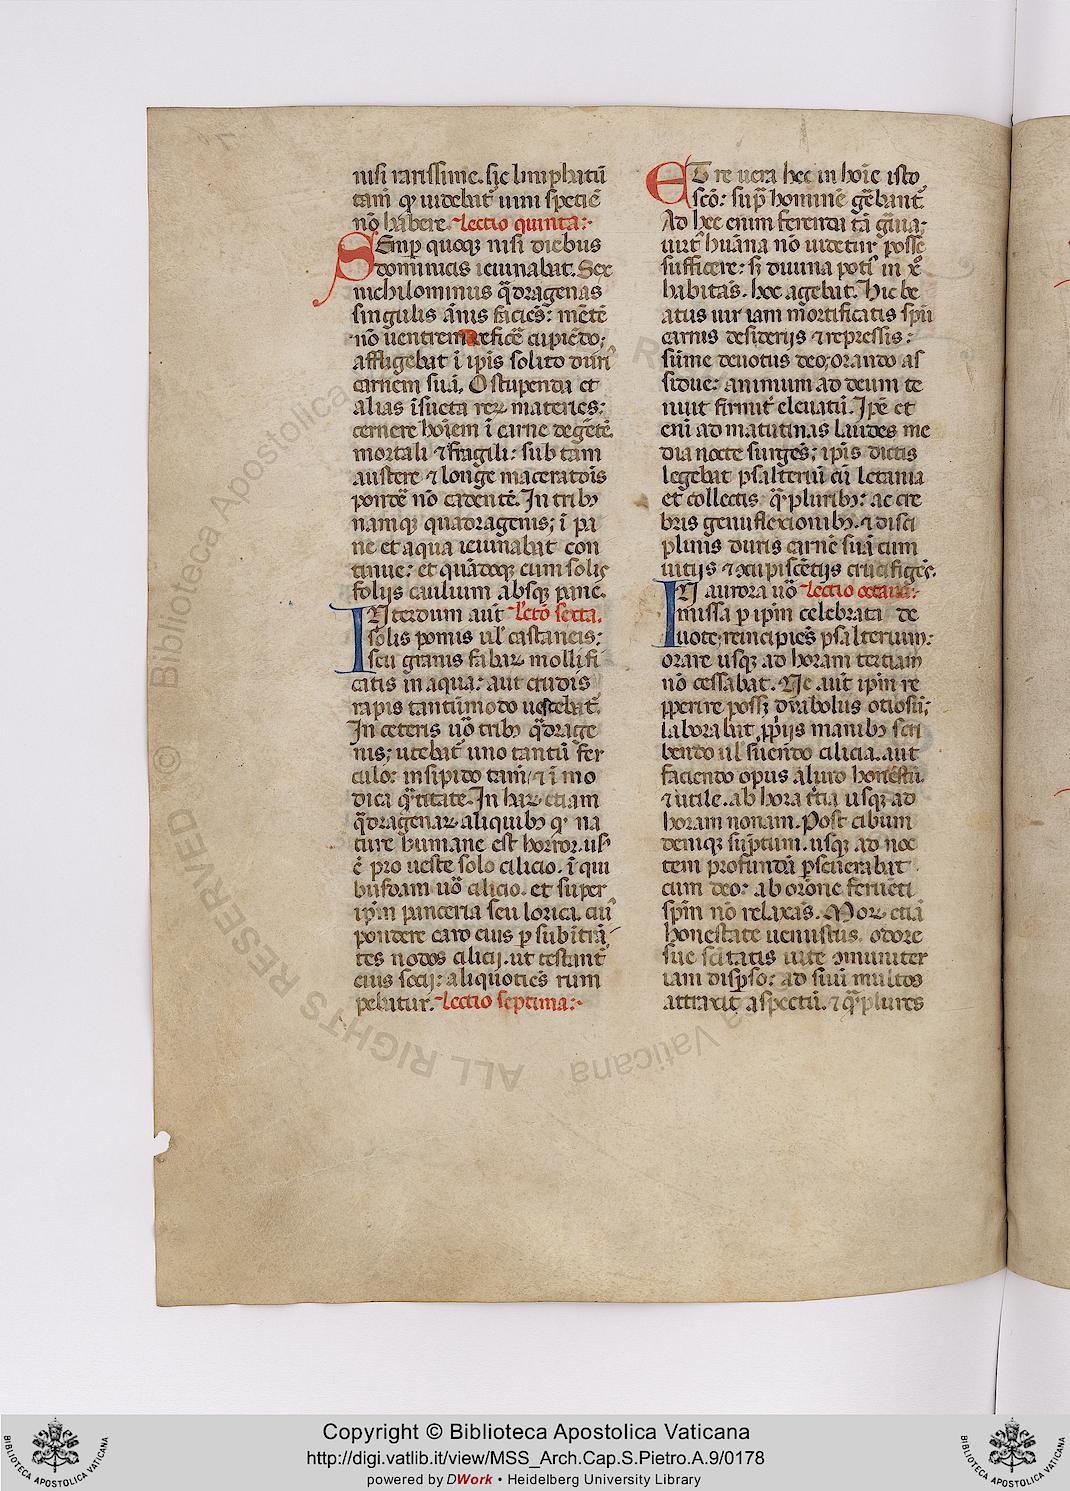 nisi rarissime. sic limphatū
tam̄ qͥ uidebat᷑ uini speciē
nō habere. Lectio quinta:
SEmꝑ quoqꝫ nisi diebus
dominicis ieiunabat. Sex
nichilominus q̄dragenas
singulis ānis facies: mētē
nō uentrem reficē cupiēdo;
affligebat ī ip̄is solito
carnem suā. O stupenda et
alias īsueta reꝝ materies:
cernere hoīem ī carne degētē
mortali ⁊ fragili: sub tam
austere ⁊ longe maceratōis
pondē nō cadentē. In tribꝰ
namqꝫ quadragenis; ī pa
ne et aqua ieiunabat con
tinue: et quādoqꝫ cum solis
folijs caulium absqꝫ pane.
INterdum aut̄ Lctō sexta.
solis pomis ul̓ castaneis:
seu granis fabaꝝ mollifi
catis in aqua: aut crudis
rapis tantūmodo uescebat᷑.
In ceteris uō tribꝰ q̄drage
nis; utebat᷑ uno tantū fer
culo: insipido tam̄ ⁊ ī mo
dica qͣtitate. In haꝝ etiam
q̄dragenaꝝ aliquibꝰ qͥ na
ture humane est horror. usꝰ
ē pro ueste solo cilicio. ī qui
busdam uō cilicio. et super
ip̄m panceria seu lorica. cuiꝰ
pondere caro eius ꝑ subītrā
tes nodos cilicij. ut testant᷑
eius socij: aliquoties rum
pebatur. Lectio septima:
ET re uera hec in hoīe isto
scō: sup̄ hominē gēbant᷑.
Ad hec enim ferenda tā gͣuia;
uirtꝰ huāna nō uidetur posse
sufficere: sꝫ diuina potiꝰ in xͦ
habitās. hec agebat. Hic be
atus uir iam mortificatis sp̄u
carnis desiderijs ⁊ repressis:
sūme deuotus deo; orando as
sidue: animum ad deum te
nuit firmit᷑ eleuatū. Ip̄e et
enī ad matutinas laudes me
dia nocte surgēs; ip̄is dictis
legebat psalteriū cū letania
et collectis qͣpluribꝰ: ac cre
bris genuflexionibꝰ. ⁊ disci
plinis duris carnē suā cum
uitijs ⁊ ↄcupiscētijs crucifigēs.
IN aurora uō Lectio octaua:
missa ꝑ ip̄m celebrata de
uote; reincipiēs psalterium:
orare usqꝫ ad horam tertiam
nō cessabat. Ne aut̄ ip̄m re
ꝑperire possꝫ dyabolus otiosū;
laborabat ꝓpijs manibꝰ scri
bendo ul̓ suendo cilicia. aut
faciendo opus aliud honestū
⁊ utile. ab hora t̄tia usqꝫ ad
horam nonam. Post cibum
demqꝫ sūptum. usqꝫ ad noc
tem profundā ꝑseuerabat
cum deo: ab orōne feruēti
sp̄m nō relaxās. Moꝝ etiā
honestate uenustus. odore
sue scītatis uite ↄmuniter
iam disꝑso: ad suū multos
attraxit aspectū. ⁊ qͣplures
Copyright © Biblioteca Apostolica Vaticana
http://digi.vatlib.it/view/MSS_Arch.Cap.S.Pietro.A.9/0178
powered by DWork • Heidelberg University Library
BIBLIOTECA APOSTOLICA VATICANA
BIBLIOTECA APOSTOLICA VATICANA
© Biblioteca Apostolica Vaticana
ALL RIGHTS RESERVED